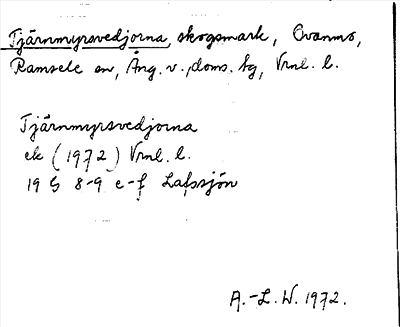 Tjärnmyrsvedjorna, skogsmark, Ovanmo,
Ramsele sn, Ång. v., doms. bg, Vrnl. l.
Tjärnmyrsvedjorna
ek (1972) Vrnl. l.
19 G 8-9 e-f Lafssjön
A.-L. W. 1972.